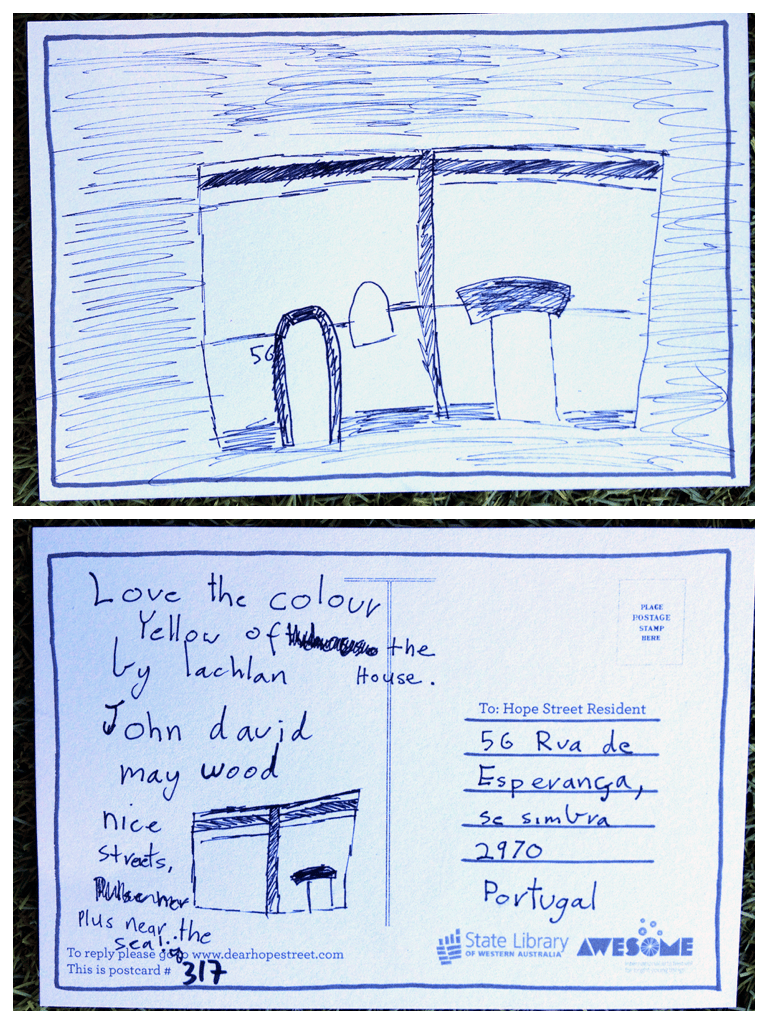 56
Love the colour
Yellow of the
by lachlan House.
John david
may wood
nice
streets,
plus near the
sea!
To reply please go to www.dearhopestreet.com
This is postcard # 317
PLACE
POSTAGE
STAMP
HERE
To: Hope Street Resident
56 Rua de
Esperança,
se simbra
2970
Portugal
State Library
OF WESTERN AUSTRALIA
AWESOME